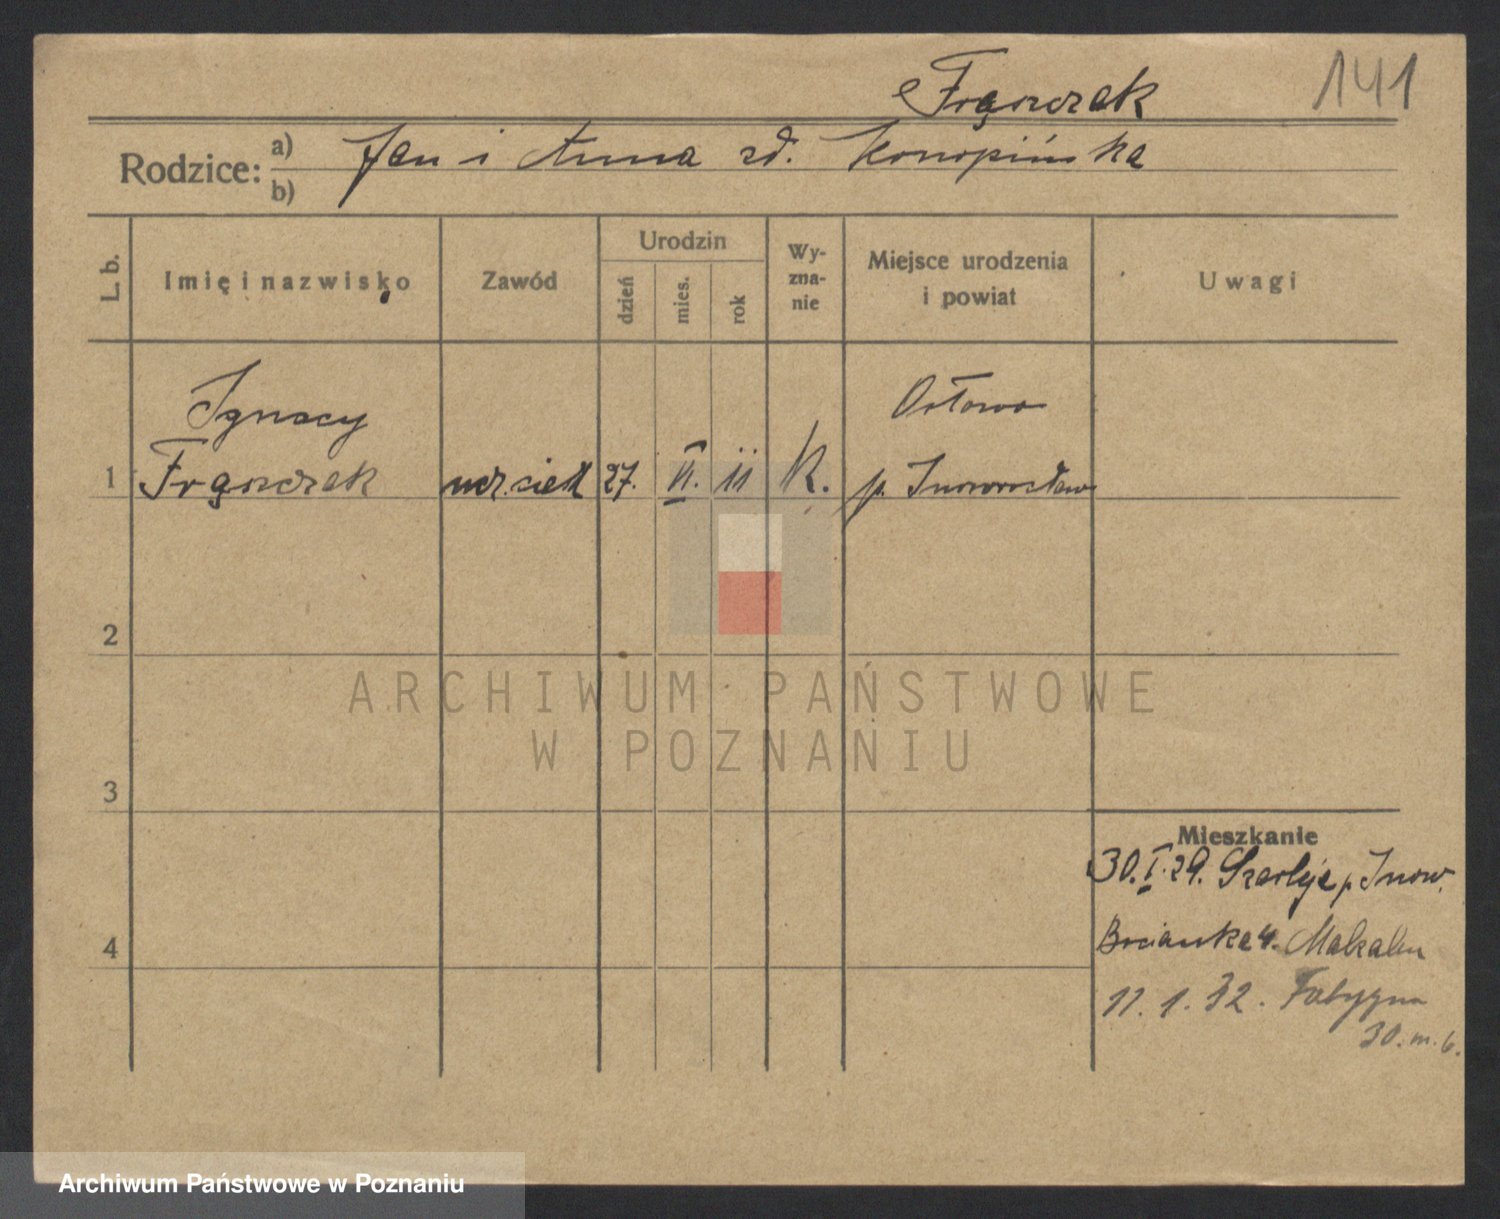 Frąszczak
141
Rodzice: a) Jan i Anna zd. Konopińska
b)
L. b.
Imię i nazwisko
Zawód
Urodzin
dzień
mies.
rok
Wy-
zna-
nie
Miejsce urodzenia
i powiat
Uwagi
Ignacy
Orłowo
1 Frąszczak 27. VI. 11 K. p. Inowrocław
2
ARCHIWUM PAŃSTWOWE
W POZNANIU
3
Mieszkanie
30.I.29. Szarleje p. Inow.
4
Bocianka 4.
11.1.32.
30. m. 6.
Archiwum Państwowe w Poznaniu